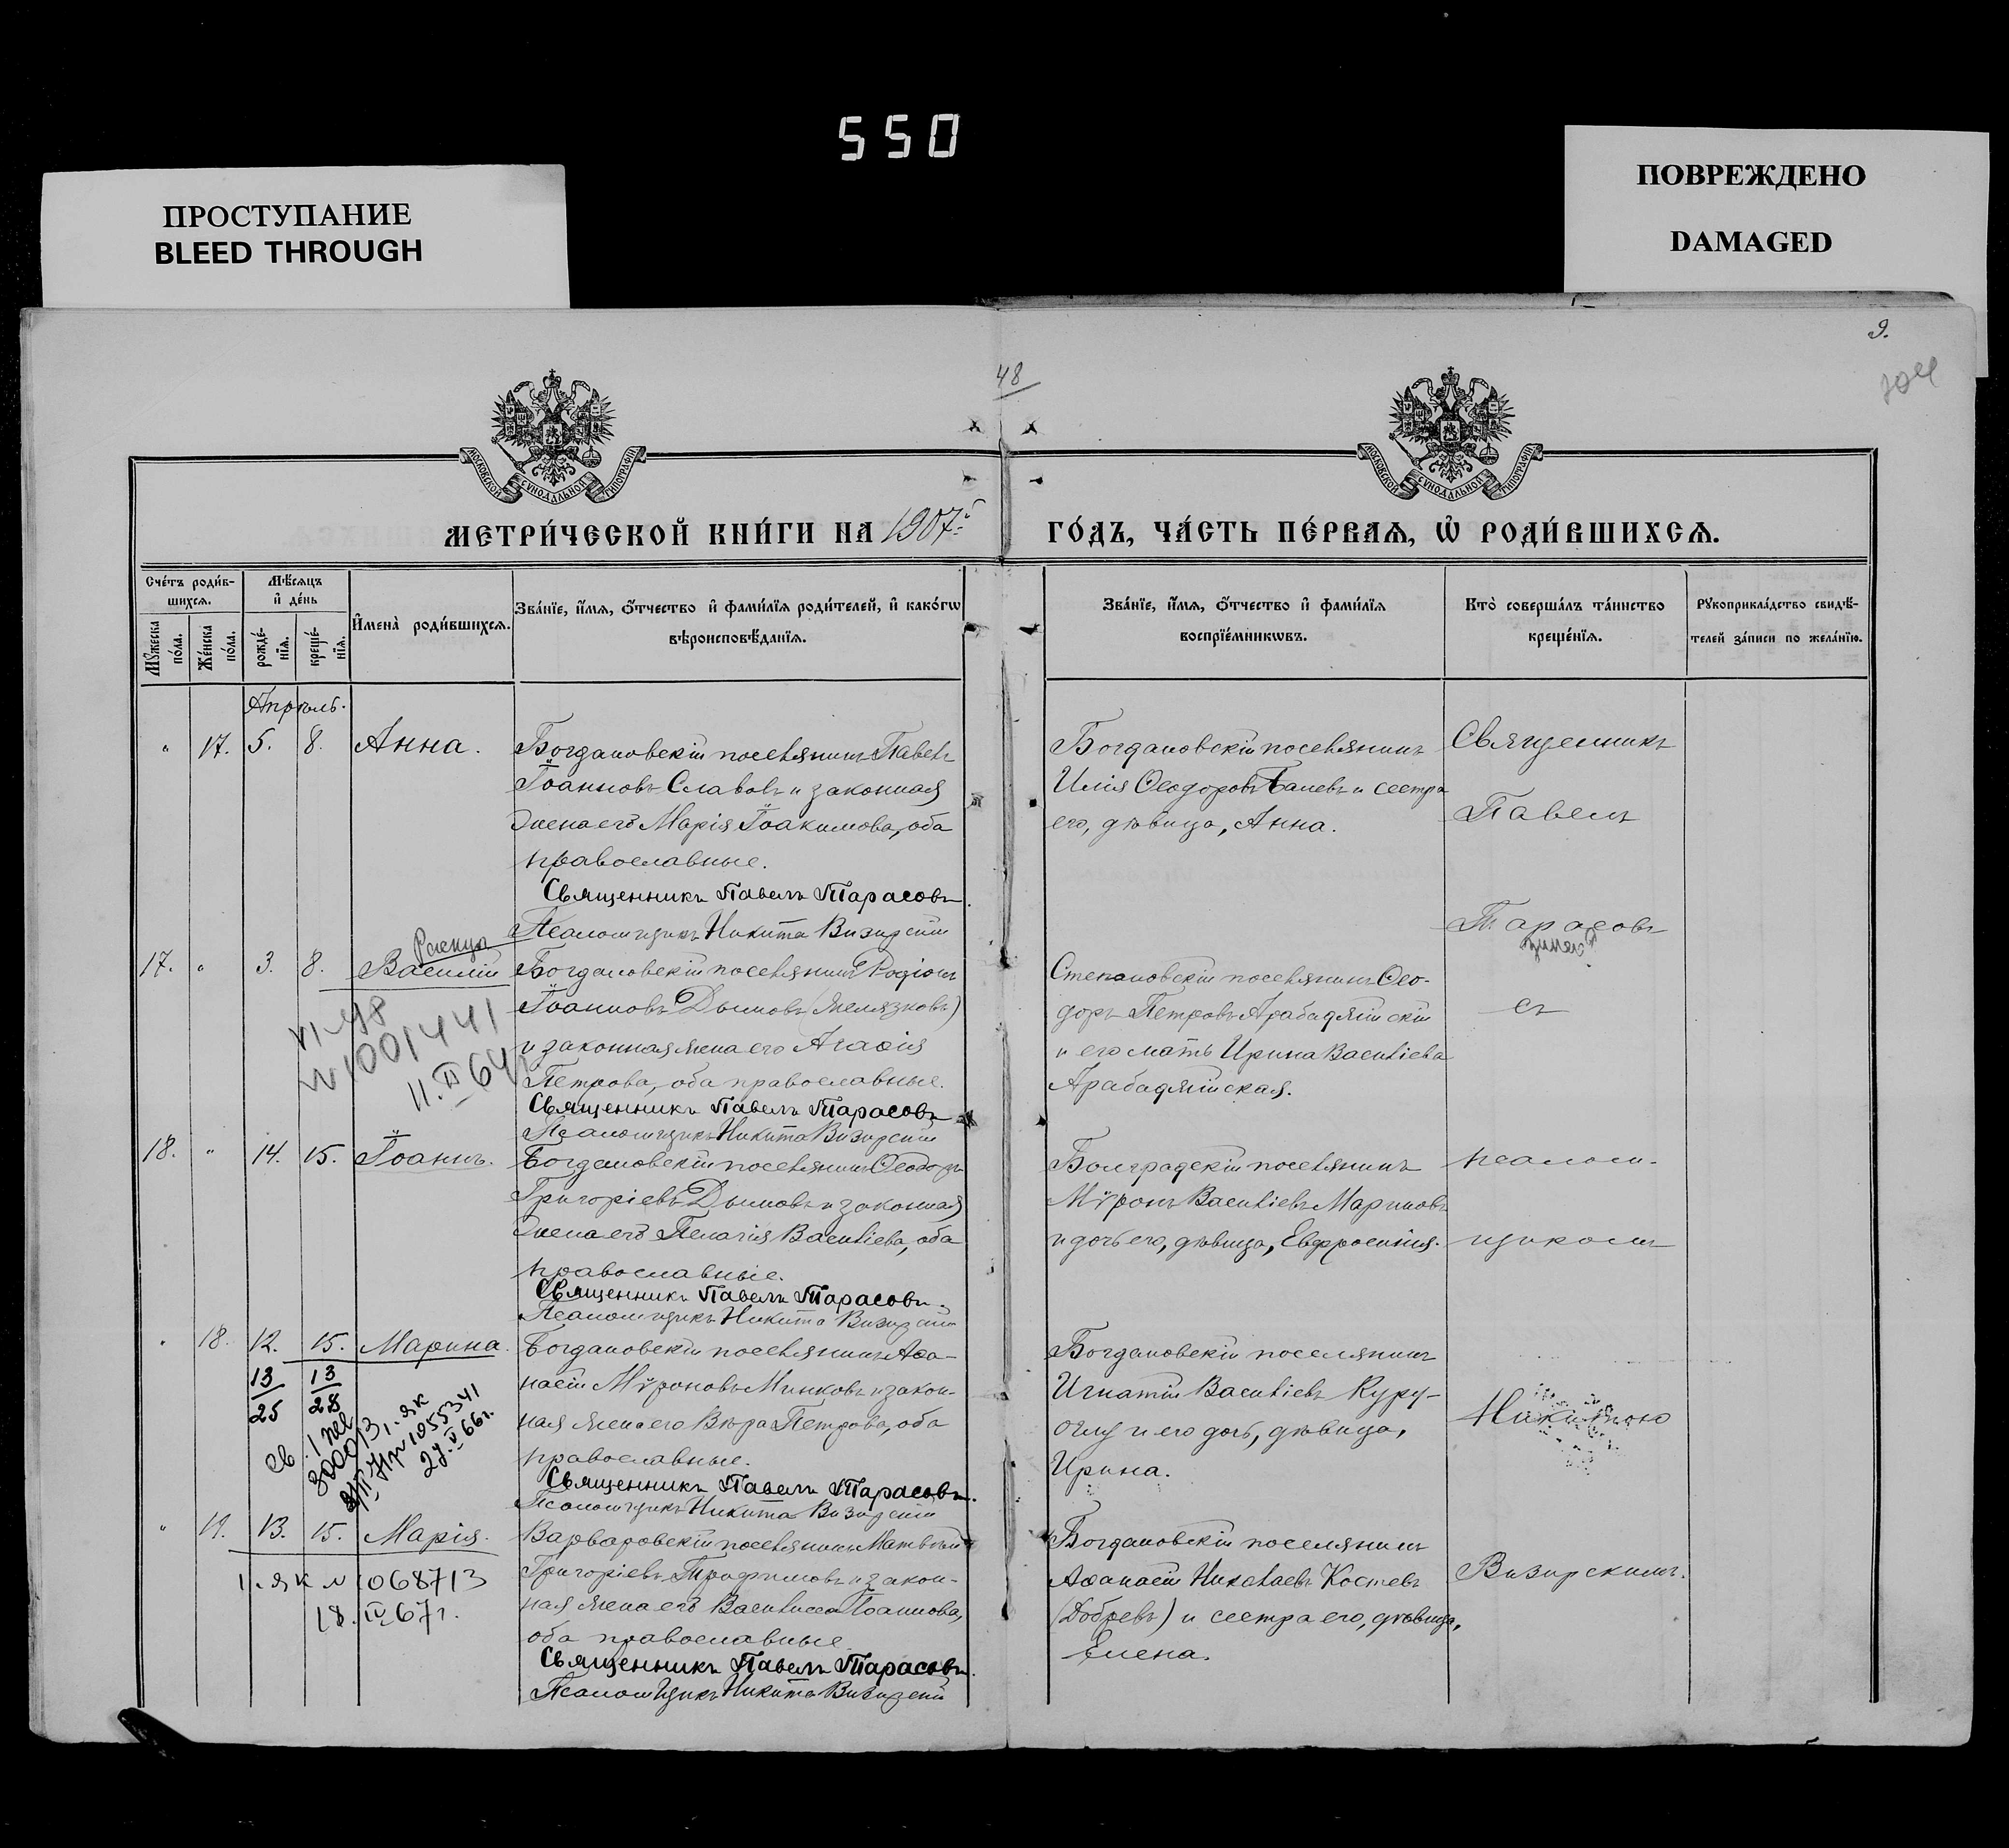 550
ПРОСТУПАНИЕ
BLEED THROUGH
ПОВРЕЖДЕНО
DAMAGED
9.
48
МОСКОВСКОЙ СУНОДАЛЬНОЙ ТИПОГРАФІИ
МОСКОВСКОЙ СУНОДАЛЬНОЙ ТИПОГРАФІИ
МЕТРИ́ЧЕСКОЙ КНИ́ГИ НА 1907й
ГО́ДЪ, ЧА́СТЬ ПЕ́РВАѦ, Ѡ҆ РОДИ́ВШИХСѦ.
Сче́тъ роди́в-
шихсѧ.
Мѣ́сѧцъ
и҆ де́нь
Мꙋ́жеска по́ла.
Же́нска по́ла.
рожде́-нїѧ.
креще́-нїѧ.
И҆мена̀ роди́вшихсѧ.
Зва́нїе, и҆́мѧ, ѻ҆́тчество и҆ фами́лїѧ роди́телей, и҆ како́гѡ
вѣроисповѣ́данїѧ.
Зва́нїе, и҆́мѧ, ѻ҆́тчество и҆ фами́лїѧ
воспрїе́мникѡвъ.
Кто̀ соверша́лъ та́инство
креще́нїѧ.
Рꙋкоприкла́дство свидѣ́-
телей за́писи по жела́нїю.
Апрѣль.
" 17. 5. 8. Анна.
Богдановскій поселянинъ Павелъ
Іоанновъ Славовъ и законная
жена его Марія Іоакимова, оба
православные.
Священникъ Павелъ Тарасовъ.
Псаломщикъ Никита Визирскій
Богдановскій поселянинъ
Илія Ѳеодоровъ Баневъ и сестра
его, дѣвица, Анна.
Священникъ
Павелъ
Тарасовъ
17. " 3. 8. Василій
Богдановскій поселянинъ Родіонъ
Іоанновъ Дымовъ (Желязковъ)
и законная жена его Агаѳія
Петрова, оба православные.
Священникъ Павелъ Тарасовъ
Псаломщикъ Никита Визирскій
VI-ЯГ
N 1001441
11. II 64г.
Степановскій поселянинъ Ѳео-
доръ Петровъ Арабаджійскій
и его мать Ирина Васильева
Арабаджійская.
съ
18. " 14. 15. Іоаннъ.
Богдановскій поселянинъ Ѳеодоръ
Григоріевъ Дымовъ и законная
жена его Пелагія Васильева, оба
православные.
Священникъ Павелъ Тарасовъ.
Псаломщикъ Никита Визирскій
Болградскій поселянинъ
Мѵронъ Васильевъ Мариновъ
и дочь его, дѣвица, Евфросинія.
псалом-
щикомъ
" 18. 12. 15. Марина.
13 13
25 28
1055341
66г.
Богдановскій поселянинъ Аѳа-
насій Мѵроновъ Минковъ и закон-
ная жена его Вѣра Петрова, оба
православные.
Священникъ Павелъ Тарасовъ.
Псаломщикъ Никита Визирскій
Богдановскій поселянинъ
Игнатій Васильевъ Куру-
оглу и его дочь, дѣвица,
Ирина.
Никитою
" 19. 13. 15. Марія.
II-ЯК N 1068713
18. IV 67г.
Варваровскій поселянинъ Матвѣй
Григоріевъ Трифимовъ и закон-
ная жена его Василисса Іоаннова,
оба православные
Священникъ Павелъ Тарасовъ.
Псаломщикъ Никита Визирскій
Богдановскій поселянинъ
Аѳанасій Николаевъ Костевъ
(Добревъ) и сестра его, дѣвица,
Елена.
Визирскимъ.